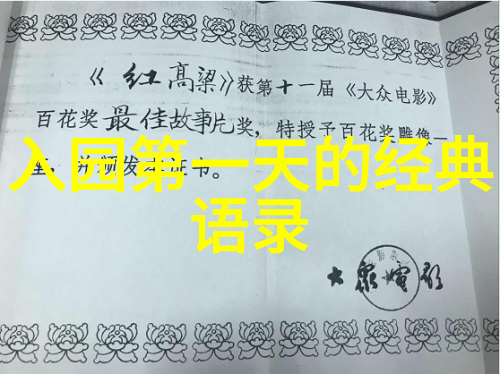 《红高粱》获第十一届《大众电影》
百花奖最佳故事片奖，特授予百花奖雕像一
座，并颁发本证书。
入园第一天的经典
语录
大众电影